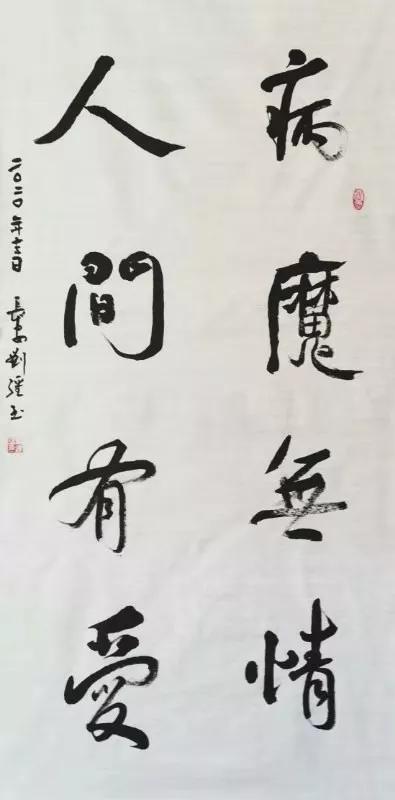 病魔無情
人間有愛
二〇二〇年
劉